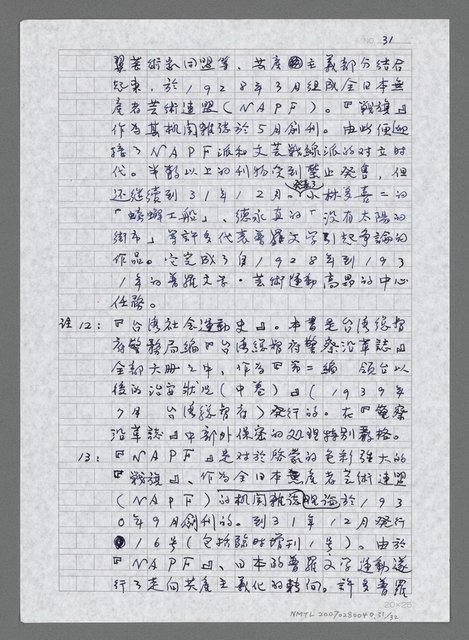 NO. 31
翼芸術家同盟等、共產主義部分結合
起來，於1928年3月組成全日本無
產者芸術連盟（NAPF）。『戰旗』
作為其机関雜誌於5月創刊。由此便迎
接了NAPF派和文芸戰線派的对立时
代。半數以上的刊物受到禁止発售，但
还継续到31年12月。発表了小林多喜二的
「蟹工船」、德永直的「没有太陽的
街市」等許多代表普羅文学引起争論的
作品。它完成了自1928年到193
1年的普羅文学・芸術運動高昂的中心
任務。
註12：『台湾社会運動史』。本書是台湾総督
府警務局編『台湾総督府警察沿革誌』
全部大冊之中，作為『第二編 領台以
後的治安狀況（中卷）』（1939年
7月 台湾総督府）発行的。在『警察
沿革誌』中部外保密的处理特別嚴格。
13：『NAPF』是对於啓蒙的色彩強大的
『戰旗』、作為全日本無產者芸術連盟
（NAPF）的机関雜誌 於193
0年9月創刊的。到31年12月発行
16号（包括臨时增刊1号）。由於
『NAPF』、日本的普羅文学運動遂
行了走向共產主義化的轉向。許多普羅
20×25
NMTL 20070280040.31/32